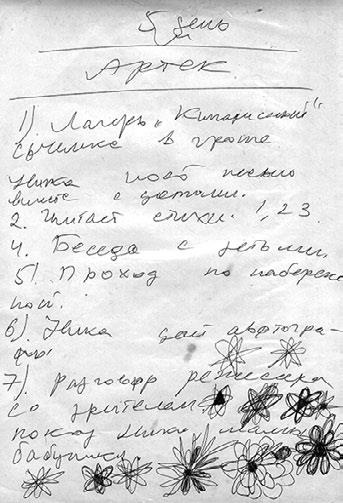 5 день
Артек
1) Лагерь "Кипарисный"
Съемка в гроте
Ника поёт песню
вместе с детьми.
2. Читает стихи. 1, 2 3.
4. Беседа с детьми.
5) Проход по набереж
ной.
6) Ника даёт автогра-
фы
7) Разговор режиссера
со зрителем
показ Ники
бабушки